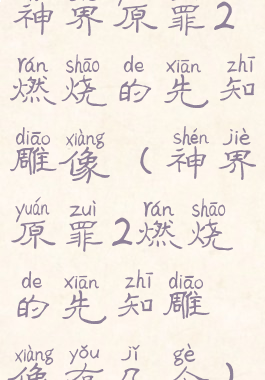 神界原罪2
rán shāo de xiān zhī
燃烧的先知
diāo xiàng shén jiè
雕像(神界
yuán zuì rán shāo
原罪2燃烧
de xiān zhī diāo
的先知雕
xiàng yǒu jǐ gè
像有几个)